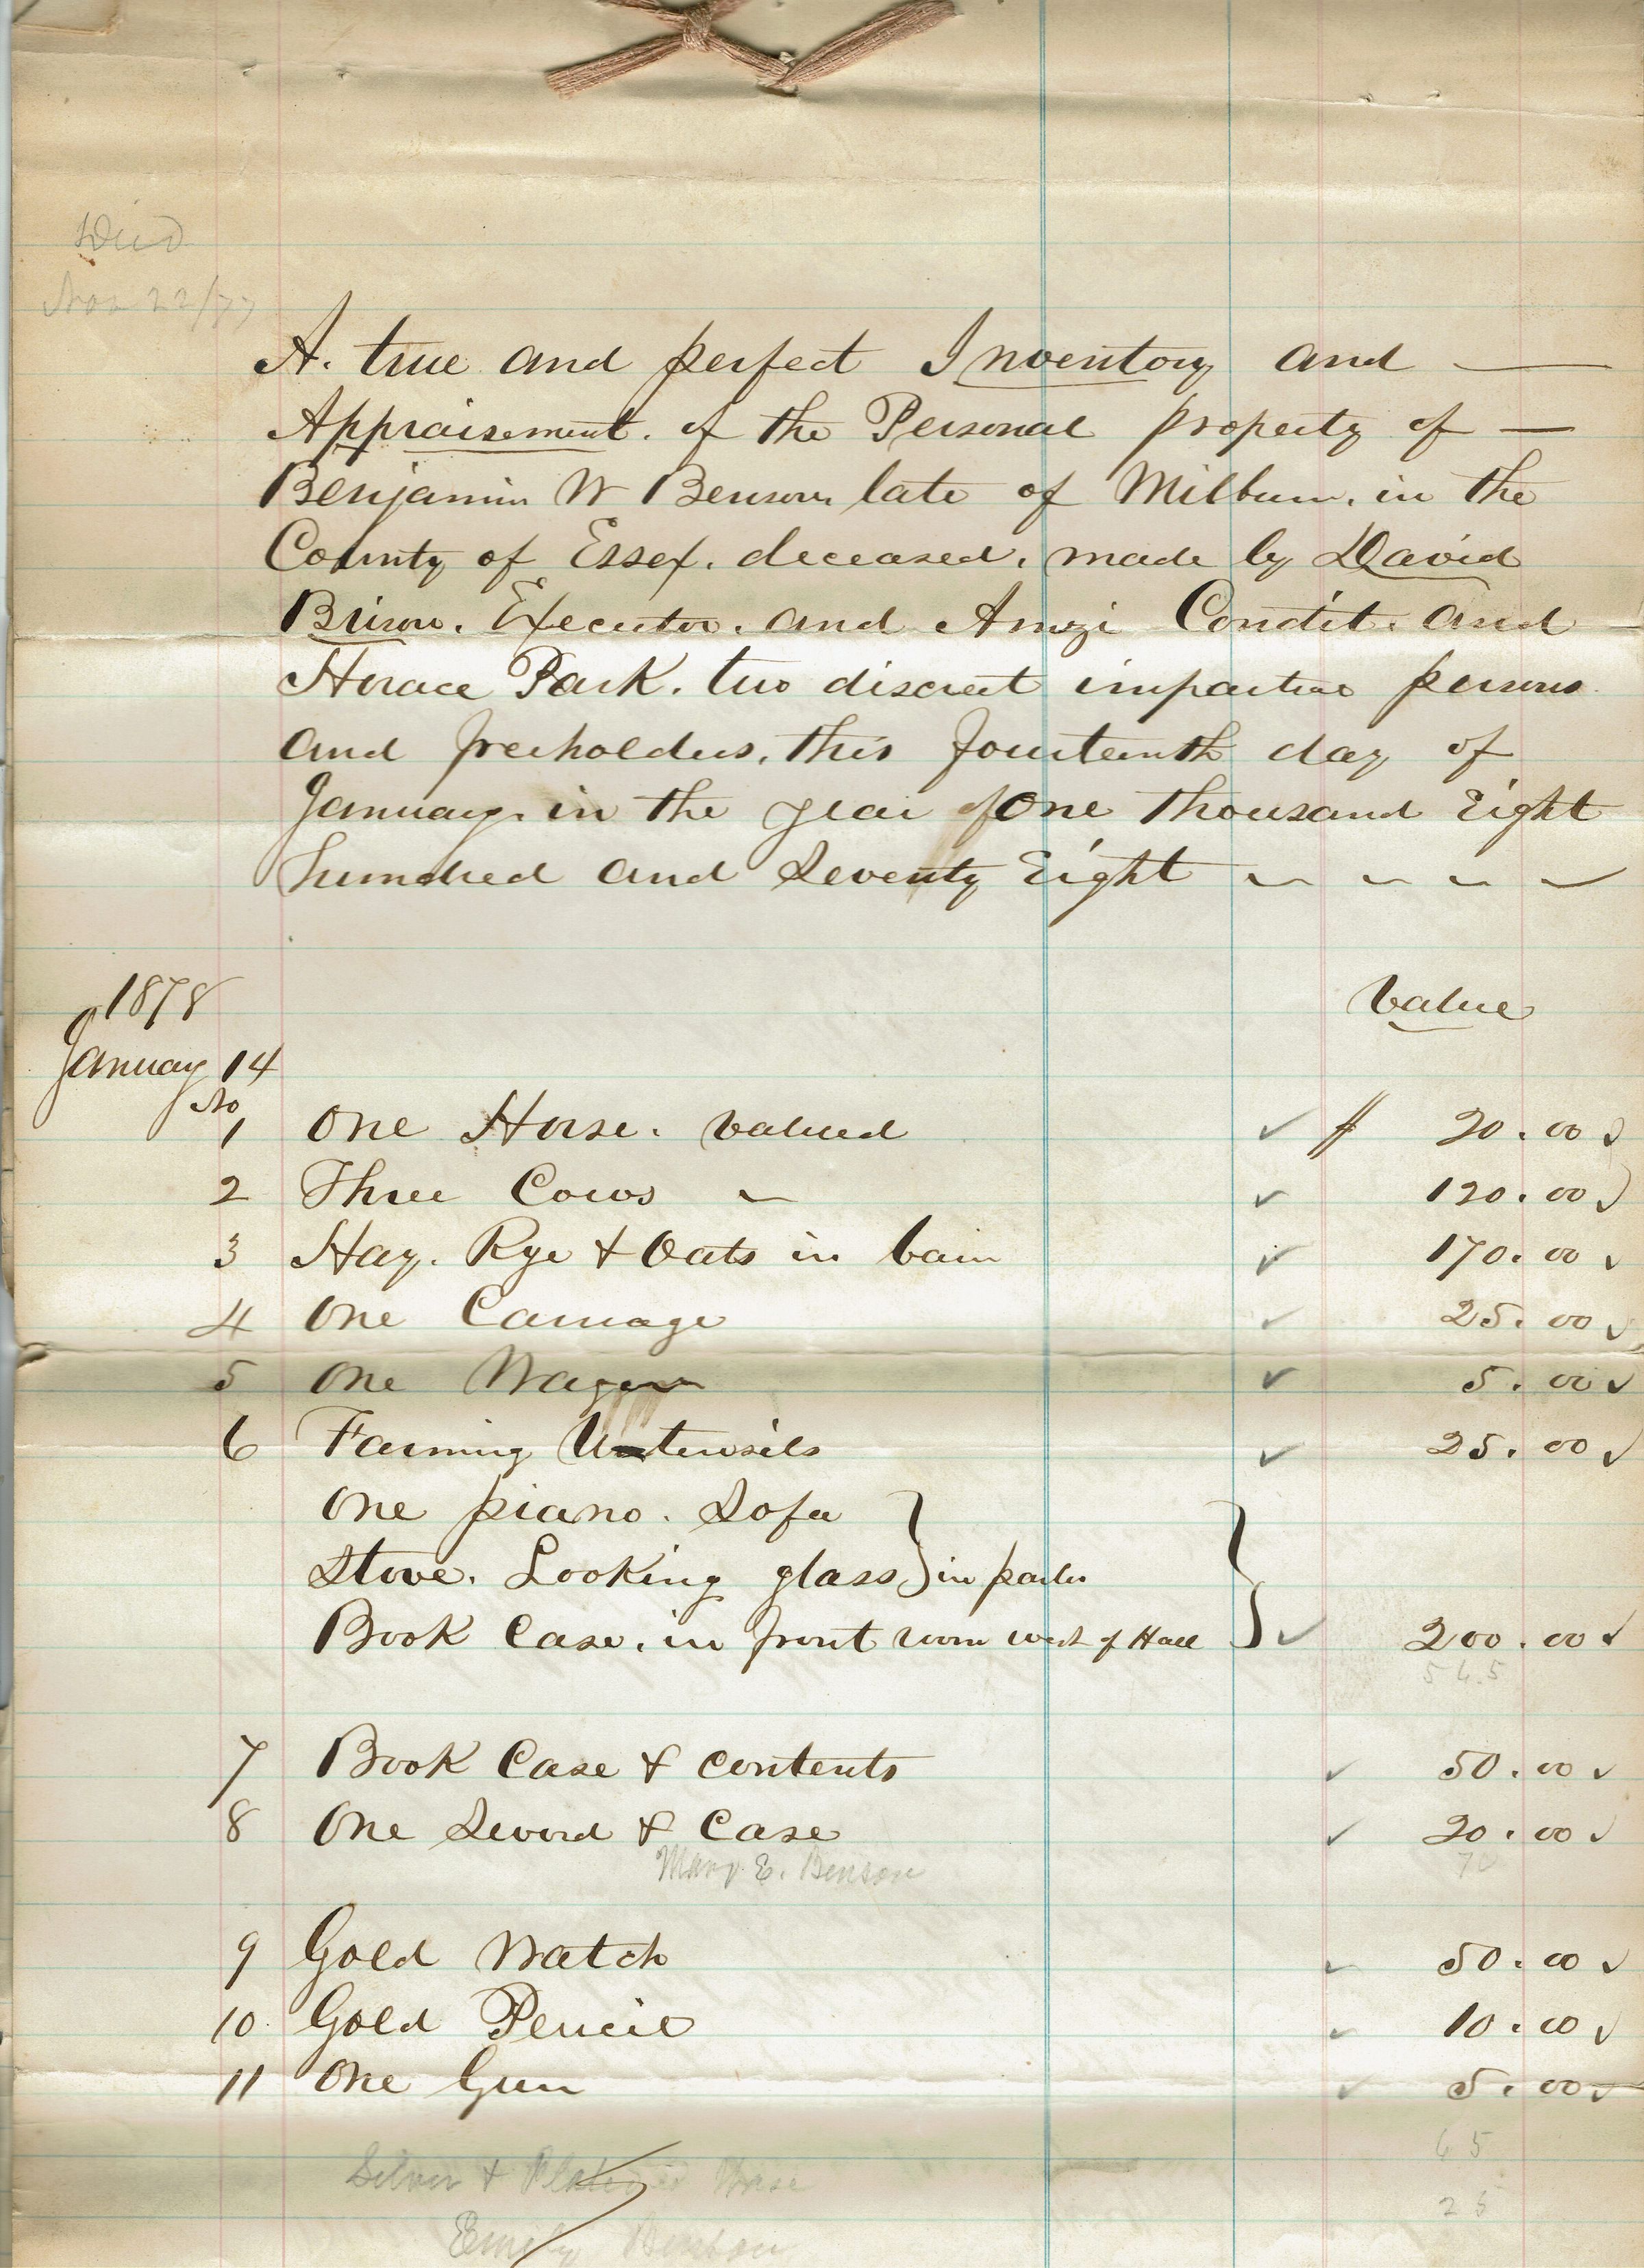 Died
Nov 22/77
A. true and perfect Inventory and —
Appraisement. of the Personal property of —
Benjamin W Benson late of Milburn. in the
County of Essex. deceased. made by David
Brison. Executor. and Amzi Condit. and
Horace Park. two discreet impartial persons
and freeholders, this fourteenth day of
January. in the year of One thousand Eight
hundred and Seventy Eight
1878
Value
January 14
No
1 One Horse. Valued ✓ $ 20.00 ✓
2 Three Cows ✓ 120.00 ✓
3 Hay. Rye & Oats in barn ✓ 170.00 ✓
4 One Carriage ✓ 25.00 ✓
5 One Wagon ✓ 5.00 ✓
6 Farming Utensils ✓ 25.00 ✓
One piano. Sofa
Stove. Looking glass } in parlor
Book Case. in front room west of Hall } ✓ 200.00 ✓
565
7 Book Case & Contents ✓ 50.00 ✓
8 One Sword & Case ✓ 20.00 ✓
Mary E. Benson 70
9 Gold Watch ✓ 50.00 ✓
10 Gold Pencil ✓ 10.00 ✓
11 One Gun ✓ 5.00 ✓
65
Silver & Plated Ware
25
Emily Benson